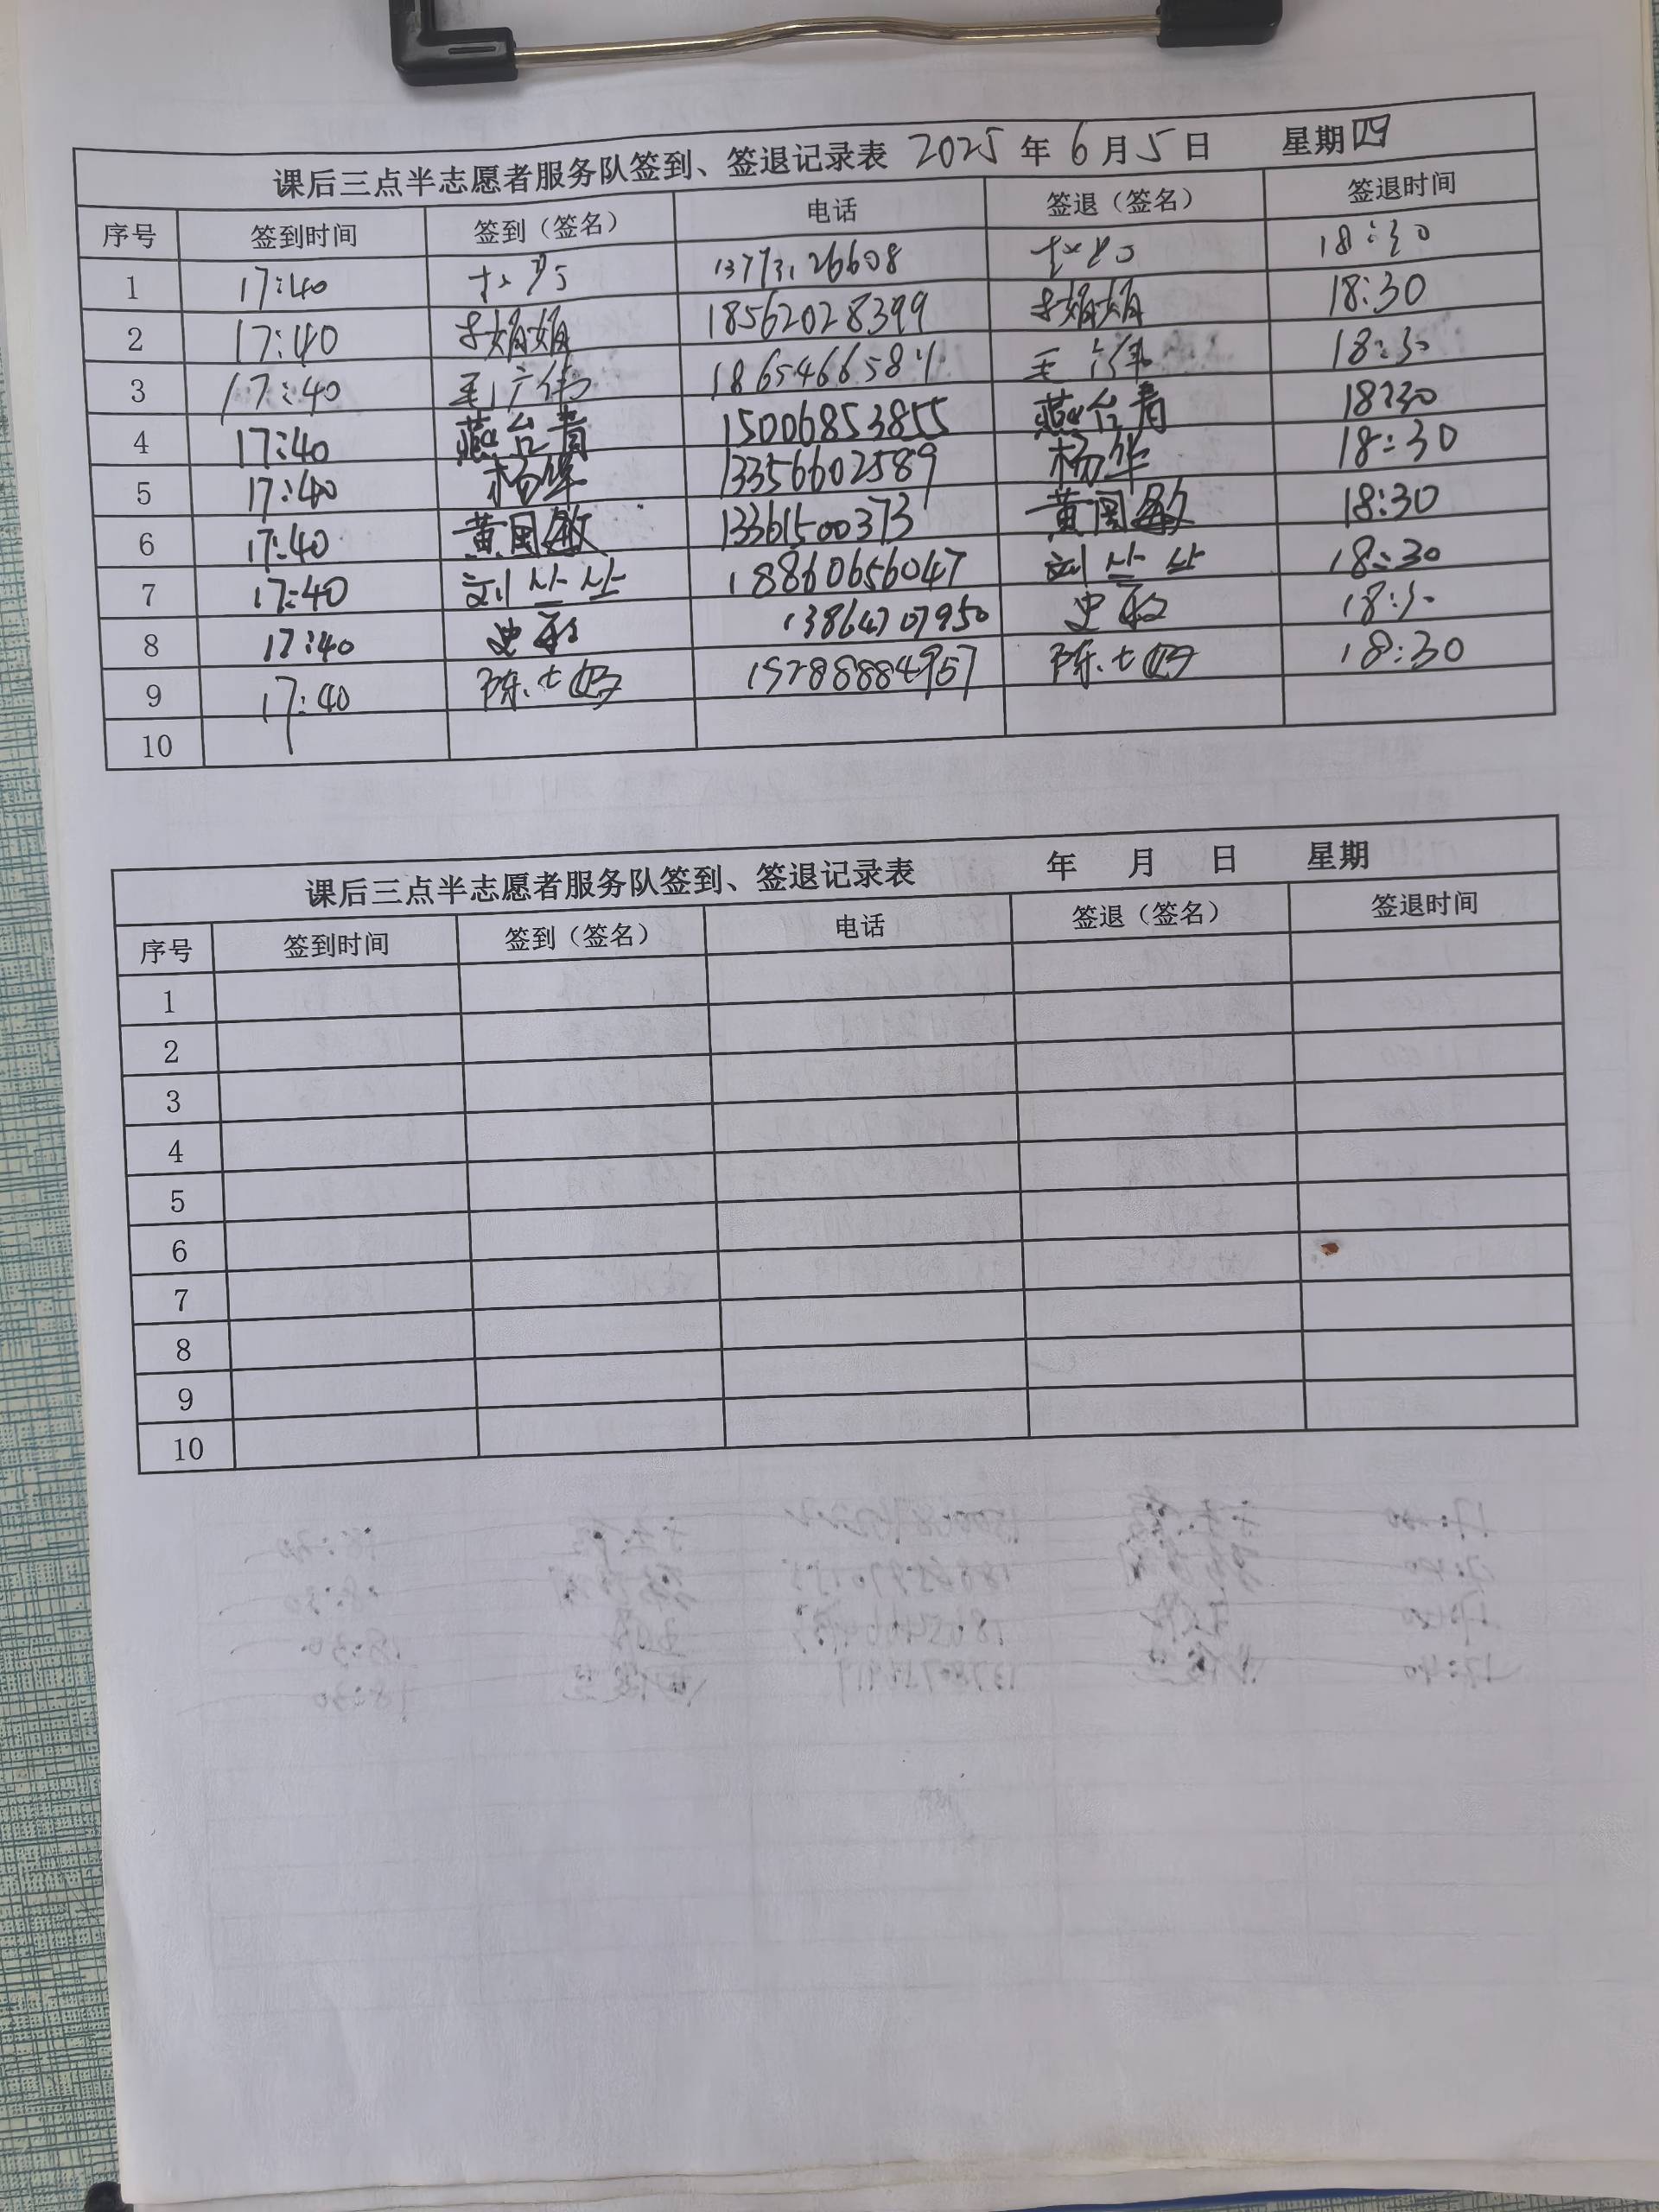 课后三点半志愿者服务队签到、签退记录表 2025年6月5日 星期四
序号 签到时间 签到（签名） 电话 签退（签名） 签退时间
1 17:40 18:30
2 17:40 娟娟 18562028399 娟娟 18:30
3 17:40 毛广伟 毛广伟 18:30
4 17:40 燕台青 15006853855 燕台青 18:30
5 17:40 杨华 13356602589 杨华 18:30
6 17:40 黄国敏 13361500373 黄国敏 18:30
7 17:40 刘丛丛 18860656047 刘丛丛 18:30
8 17:40 史 13864707950 史 18:30
9 17:40 陈 陈 18:30
10
课后三点半志愿者服务队签到、签退记录表 年 月 日 星期
序号 签到时间 签到（签名） 电话 签退（签名） 签退时间
1
2
3
4
5
6
7
8
9
10